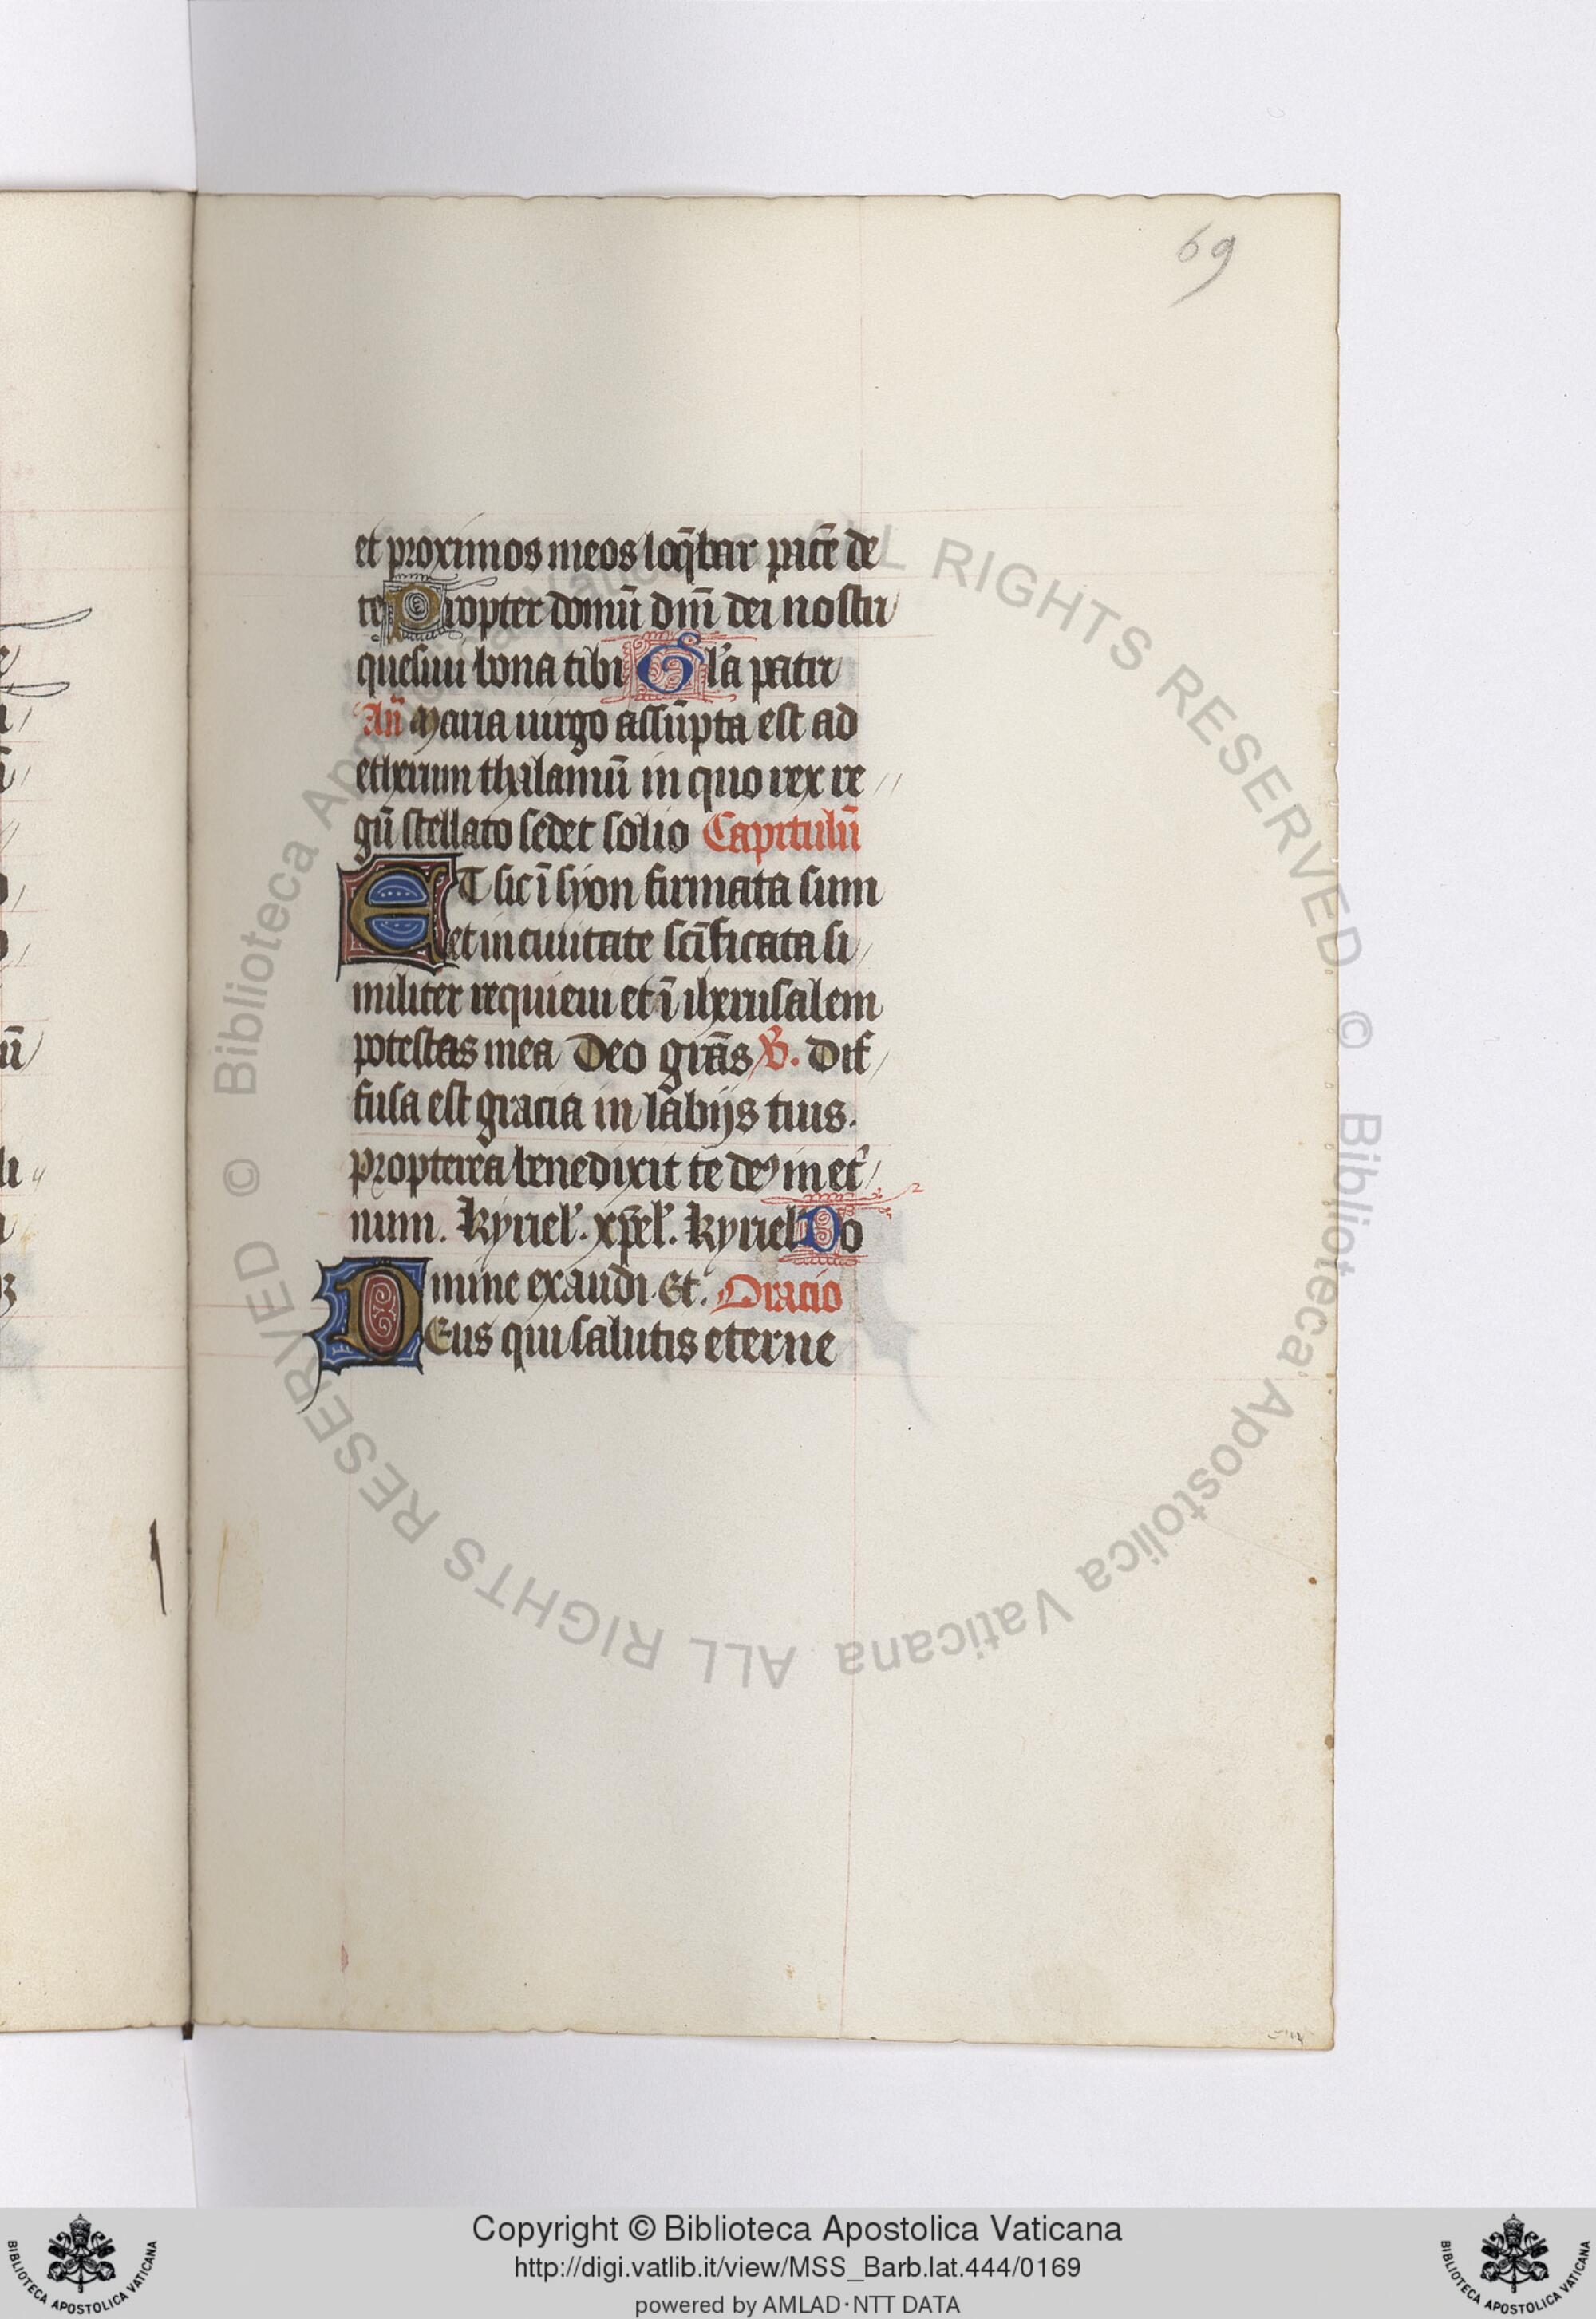 69
et proximos meos loq̄bar pacē de
te Propter domū dn̄i dei nostri
quesiui bona tibi Gl'a patri
An̄ Maria uirgo assūpta est ad
etherium thalamū in quo rex re
gū stellato sedet solio Capitulū
ET sic ī syon firmata sum
et in ciuitate scīficata si
militer requieui et ī iherusalem
potestas mea Deo grās V. Dif
fusa est gracia in labijs tuis.
Propterea benedixit te deꝰ in et'
num. kyriel'. xp̄el'. kyriel' Do
mine exaudi. Et. Oracio
DEus qui salutis eterne
© Biblioteca Apostolica Vaticana ALL RIGHTS RESERVED
© Biblioteca Apostolica Vaticana ALL RIGHTS RESERVED
Copyright © Biblioteca Apostolica Vaticana
http://digi.vatlib.it/view/MSS_Barb.lat.444/0169
powered by AMLAD·NTT DATA
BIBLIOTECA APOSTOLICA VATICANA
BIBLIOTECA APOSTOLICA VATICANA